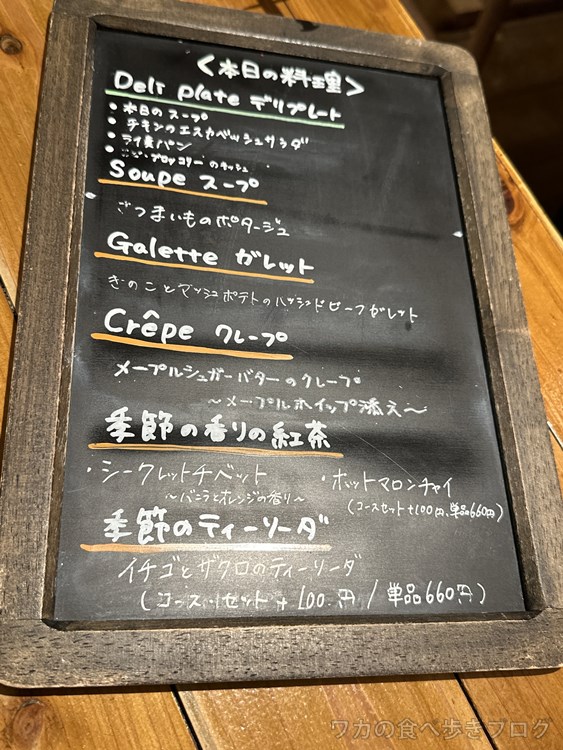 <本日の料理>
Deli plate デリプレート
・本日のスープ
・チキンのエスカベッシュサラダ
・ライ麦パン
・ブロッコリーのキッシュ
Soupe スープ
さつまいものポタージュ
Galette ガレット
きのことマッシュポテトのハッシュドビーフガレット
Crêpe クレープ
メープルシュガーバターのクレープ
〜メープルホイップ添え〜
季節の香りの紅茶
・シークレットチベット
〜バニラとオレンジの香り〜
・ホットマロンチャイ
(コースセット+100円、単品660円)
季節のティーソーダ
イチゴとザクロのティーソーダ
(コースセット+100円/単品660円)
ワカの食べ歩きブログ